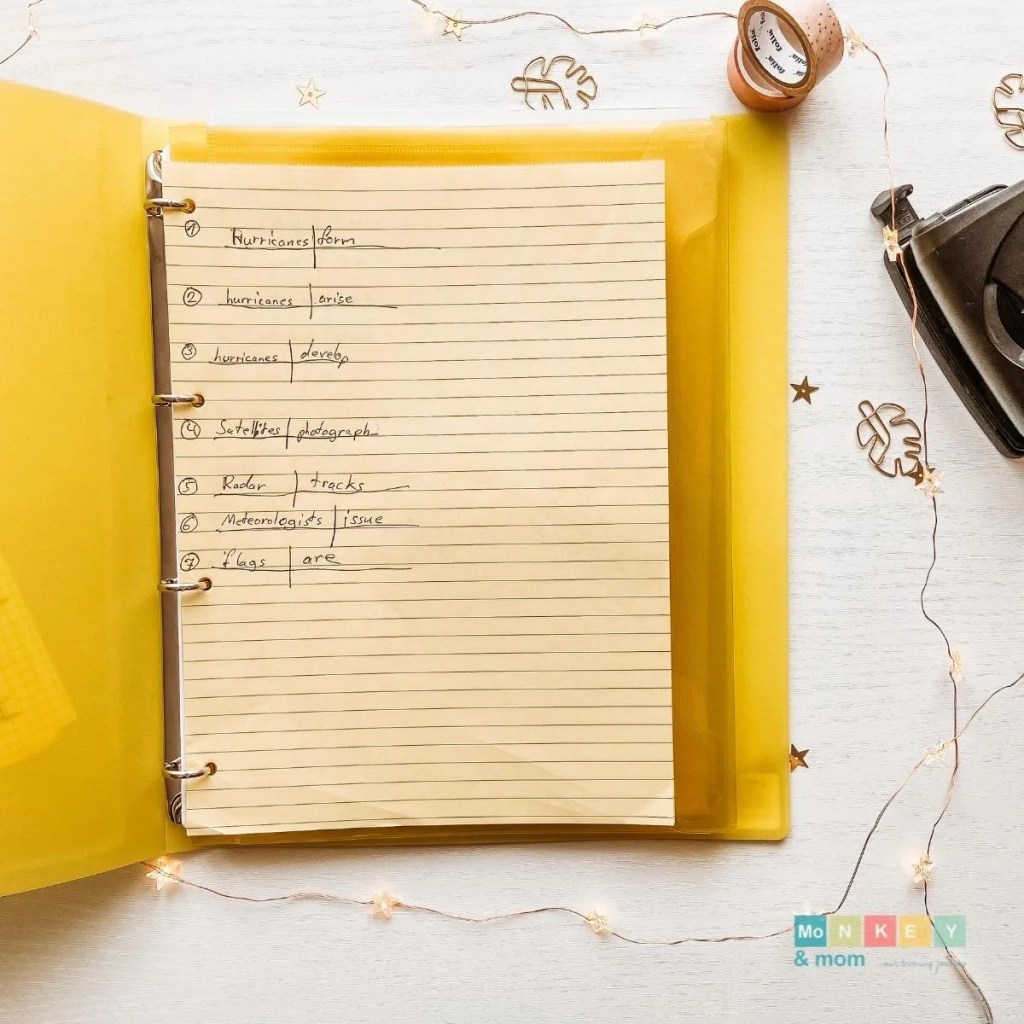 folia
folia
folia
① Hurricanes | form
② hurricanes | arise
③ hurricanes | develop
④ Satellites | photograph
⑤ Radar | tracks
⑥ Meteorologists | issue
⑦ flags | are
MoNKEY
& mom